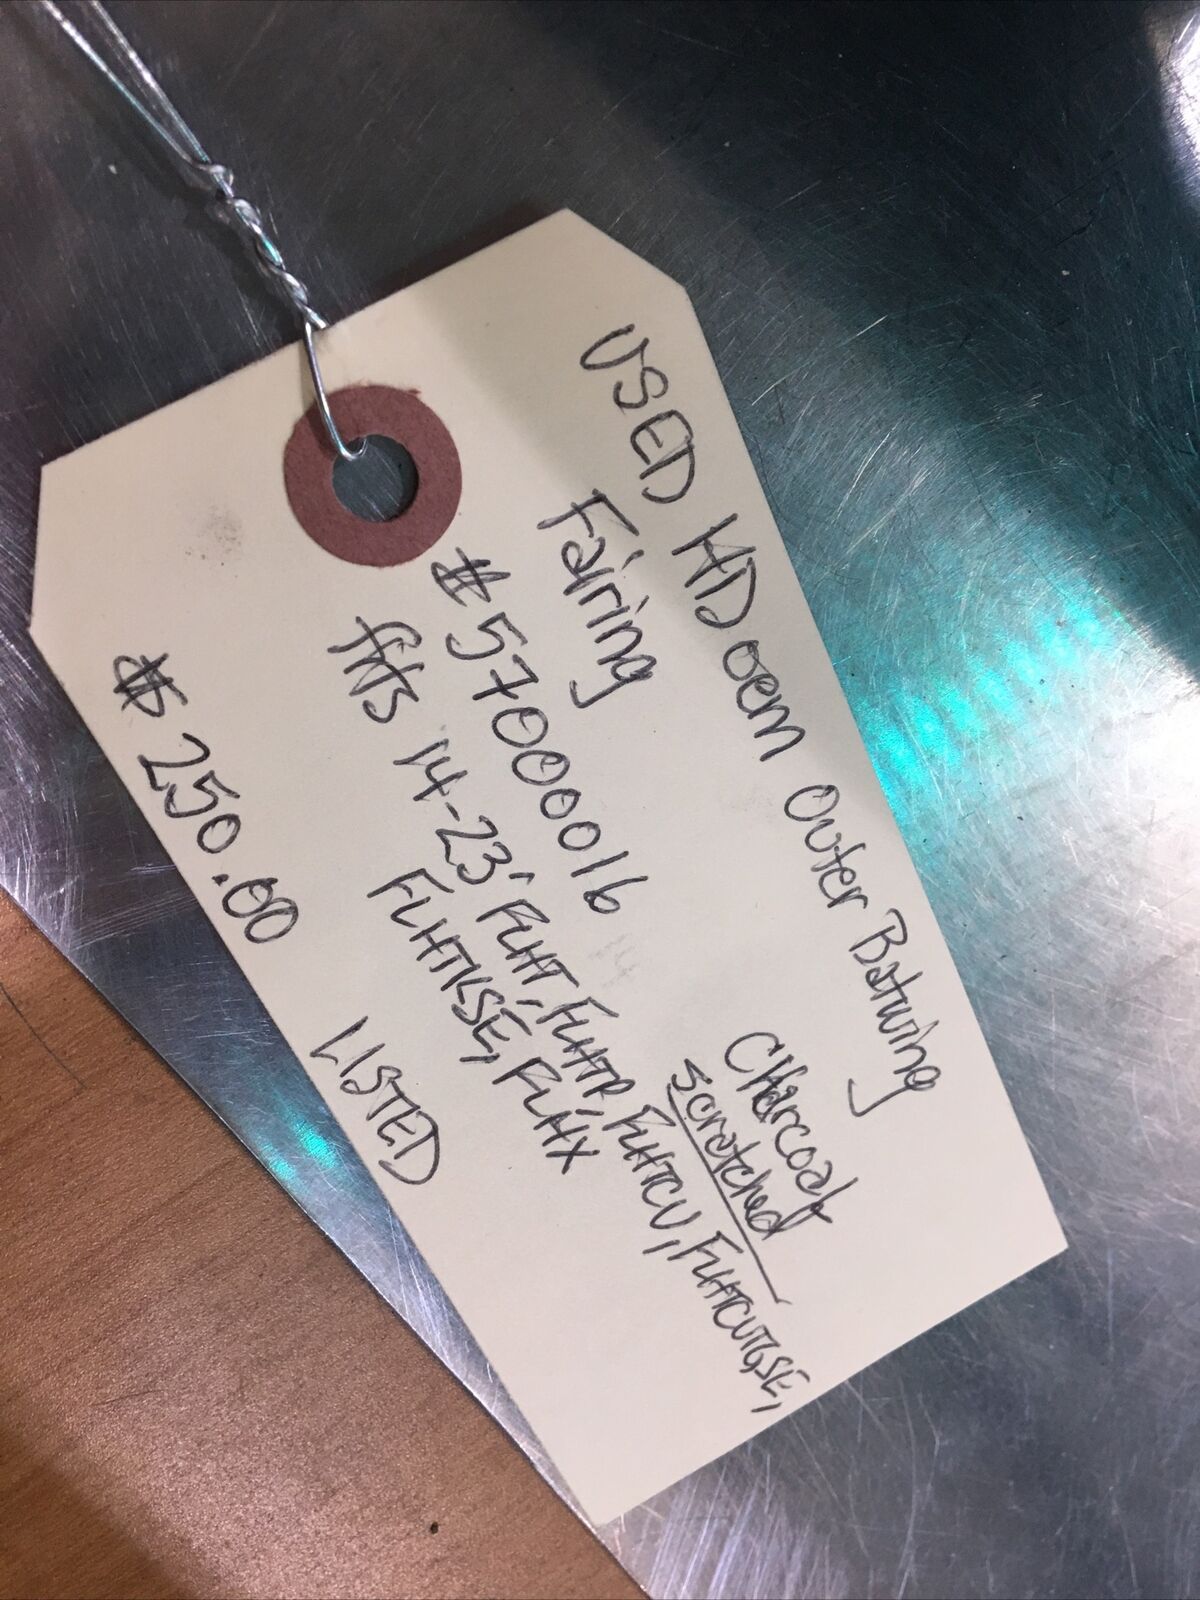 USED HD oem Outer Batwing
Fairing
Charcoal
scratched
# 57000016
fits 14-23' FLHT, FLHTP, FLHTCU, FLHTCUTGSE,
FLHTKSE, FLHX
$ 250.00 LISTED